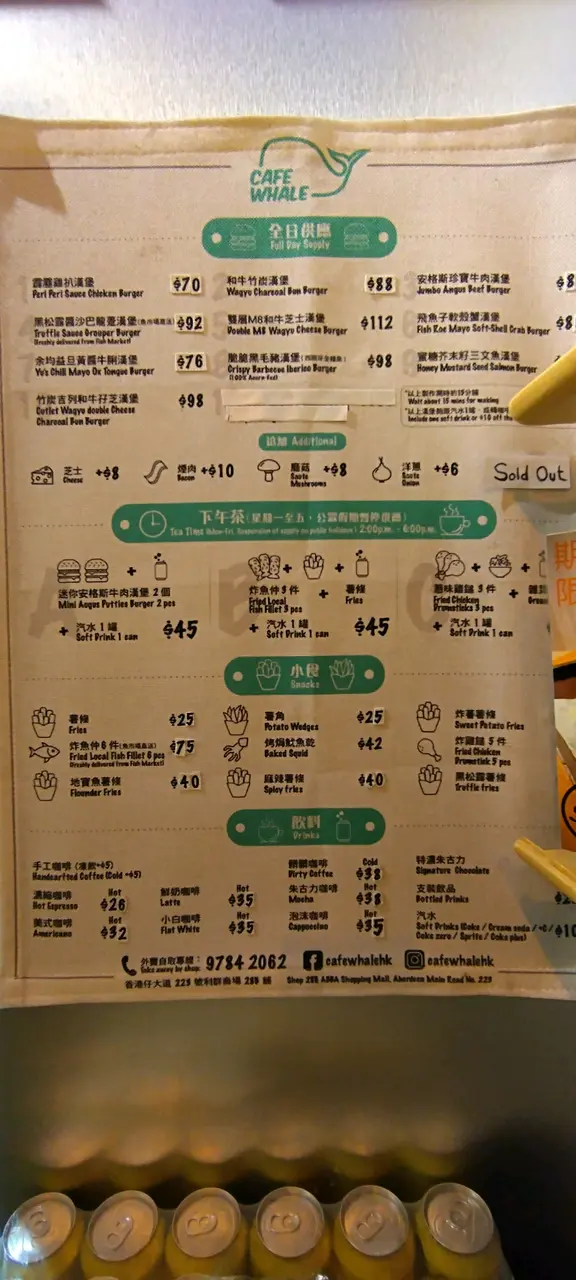 CAFE
WHALE
全日供應
Full Day Supply
霹靂雞扒漢堡 $70
Peri Peri Sauce Chicken Burger
和牛竹炭漢堡 $88
Wagyu Charcoal Bun Burger
安格斯珍寶牛肉漢堡 $8
Jumbo Angus Beef Burger
黑松露醬沙巴龍躉漢堡(魚市場直送) $92
Truffle Sauce Grouper Burger
(Freshly delivered from Fish Market)
雙層M8和牛芝士漢堡 $112
Double M8 Wagyu Cheese Burger
飛魚子軟殼蟹漢堡 $8
Fish Roe Mayo Soft-Shell Crab Burger
余均益旦黃醬牛脷漢堡 $76
Yu's Chili Mayo Ox Tongue Burger
脆脆黑毛豬漢堡 $98
Crispy Barbecue Iberico Burger
蜜糖芥末籽三文魚漢堡
Honey Mustard Seed Salmon Burger
竹炭吉列和牛孖芝漢堡 $98
Cutlet Wagyu double Cheese
Charcoal Bun Burger
*以上製作需時約15分鐘
Wait about 15 mins for making
Include one soft drink or $10 off the
追加 Additional
芝士 +$8
Cheese
煙肉 +$10
Bacon
蘑菇 +$8
Saute
Mushrooms
洋蔥 +$6
Saute
Onion
Sold Out
下午茶(星期一至五，公眾假期暫停供應)
Tea Time (Mon-Fri, Suspension of supply on public holidays) 2:00p.m. - 6:00p.m.
A
B
C
+
迷你安格斯牛肉漢堡 2 個
Mini Angus Patties Burger 2 pcs
+ 汽水 1 罐 $45
Soft Drink 1 can
+ +
炸魚件 3 件 + 薯條
Fried Local Fries
Fish Fillet 3 pcs
+ 汽水 1 罐 $45
Soft Drink 1 can
+ +
雞鎚 3 件 +
Fried Chicken
Drumsticks 3 pcs
+ 汽水 1 罐
Soft Drink 1 can
期
限
小食
Snacks
薯條 $25
Fries
薯角 $25
Potato Wedges
炸番薯條
Sweet Potato Fries
炸魚件 6 件(魚市場直送) $75
Fried Local Fish Fillet 6 pcs
(Freshly delivered from Fish Market)
烤焗魷魚乾 $42
Baked Squid
炸雞鎚 5 件
Fried Chicken
Drumstick 5 pcs
地寶魚薯條 $40
Flounder Fries
麻辣薯條 $40
Spicy fries
黑松露薯條
Truffle fries
飲料
Drinks
手工咖啡 (凍飲+$5)
Handcrafted Coffee (Cold +$5)
髒髒咖啡 Cold
Dirty Coffee $38
特濃朱古力
Signature Chocolate
濃縮咖啡 Hot
Hot Espresso $26
鮮奶咖啡 Hot
Latte $35
朱古力咖啡 Hot
Mocha $38
支裝飲品
Bottled Drinks
美式咖啡 Hot
Americano $32
小白咖啡 Hot
Flat White $35
泡沫咖啡 Hot
Cappuccino $35
汽水
Soft Drinks (Coke / Cream soda / +C /
Coke zero / Sprite / Coke plus) $10
外賣自取專線： 9784 2062
Take away by shop
cafewhalehk
cafewhalehk
香港仔大道 223 號利群商場 28B 舖
Shop 28B ABBA Shopping Mall, Aberdeen Main Road No. 223